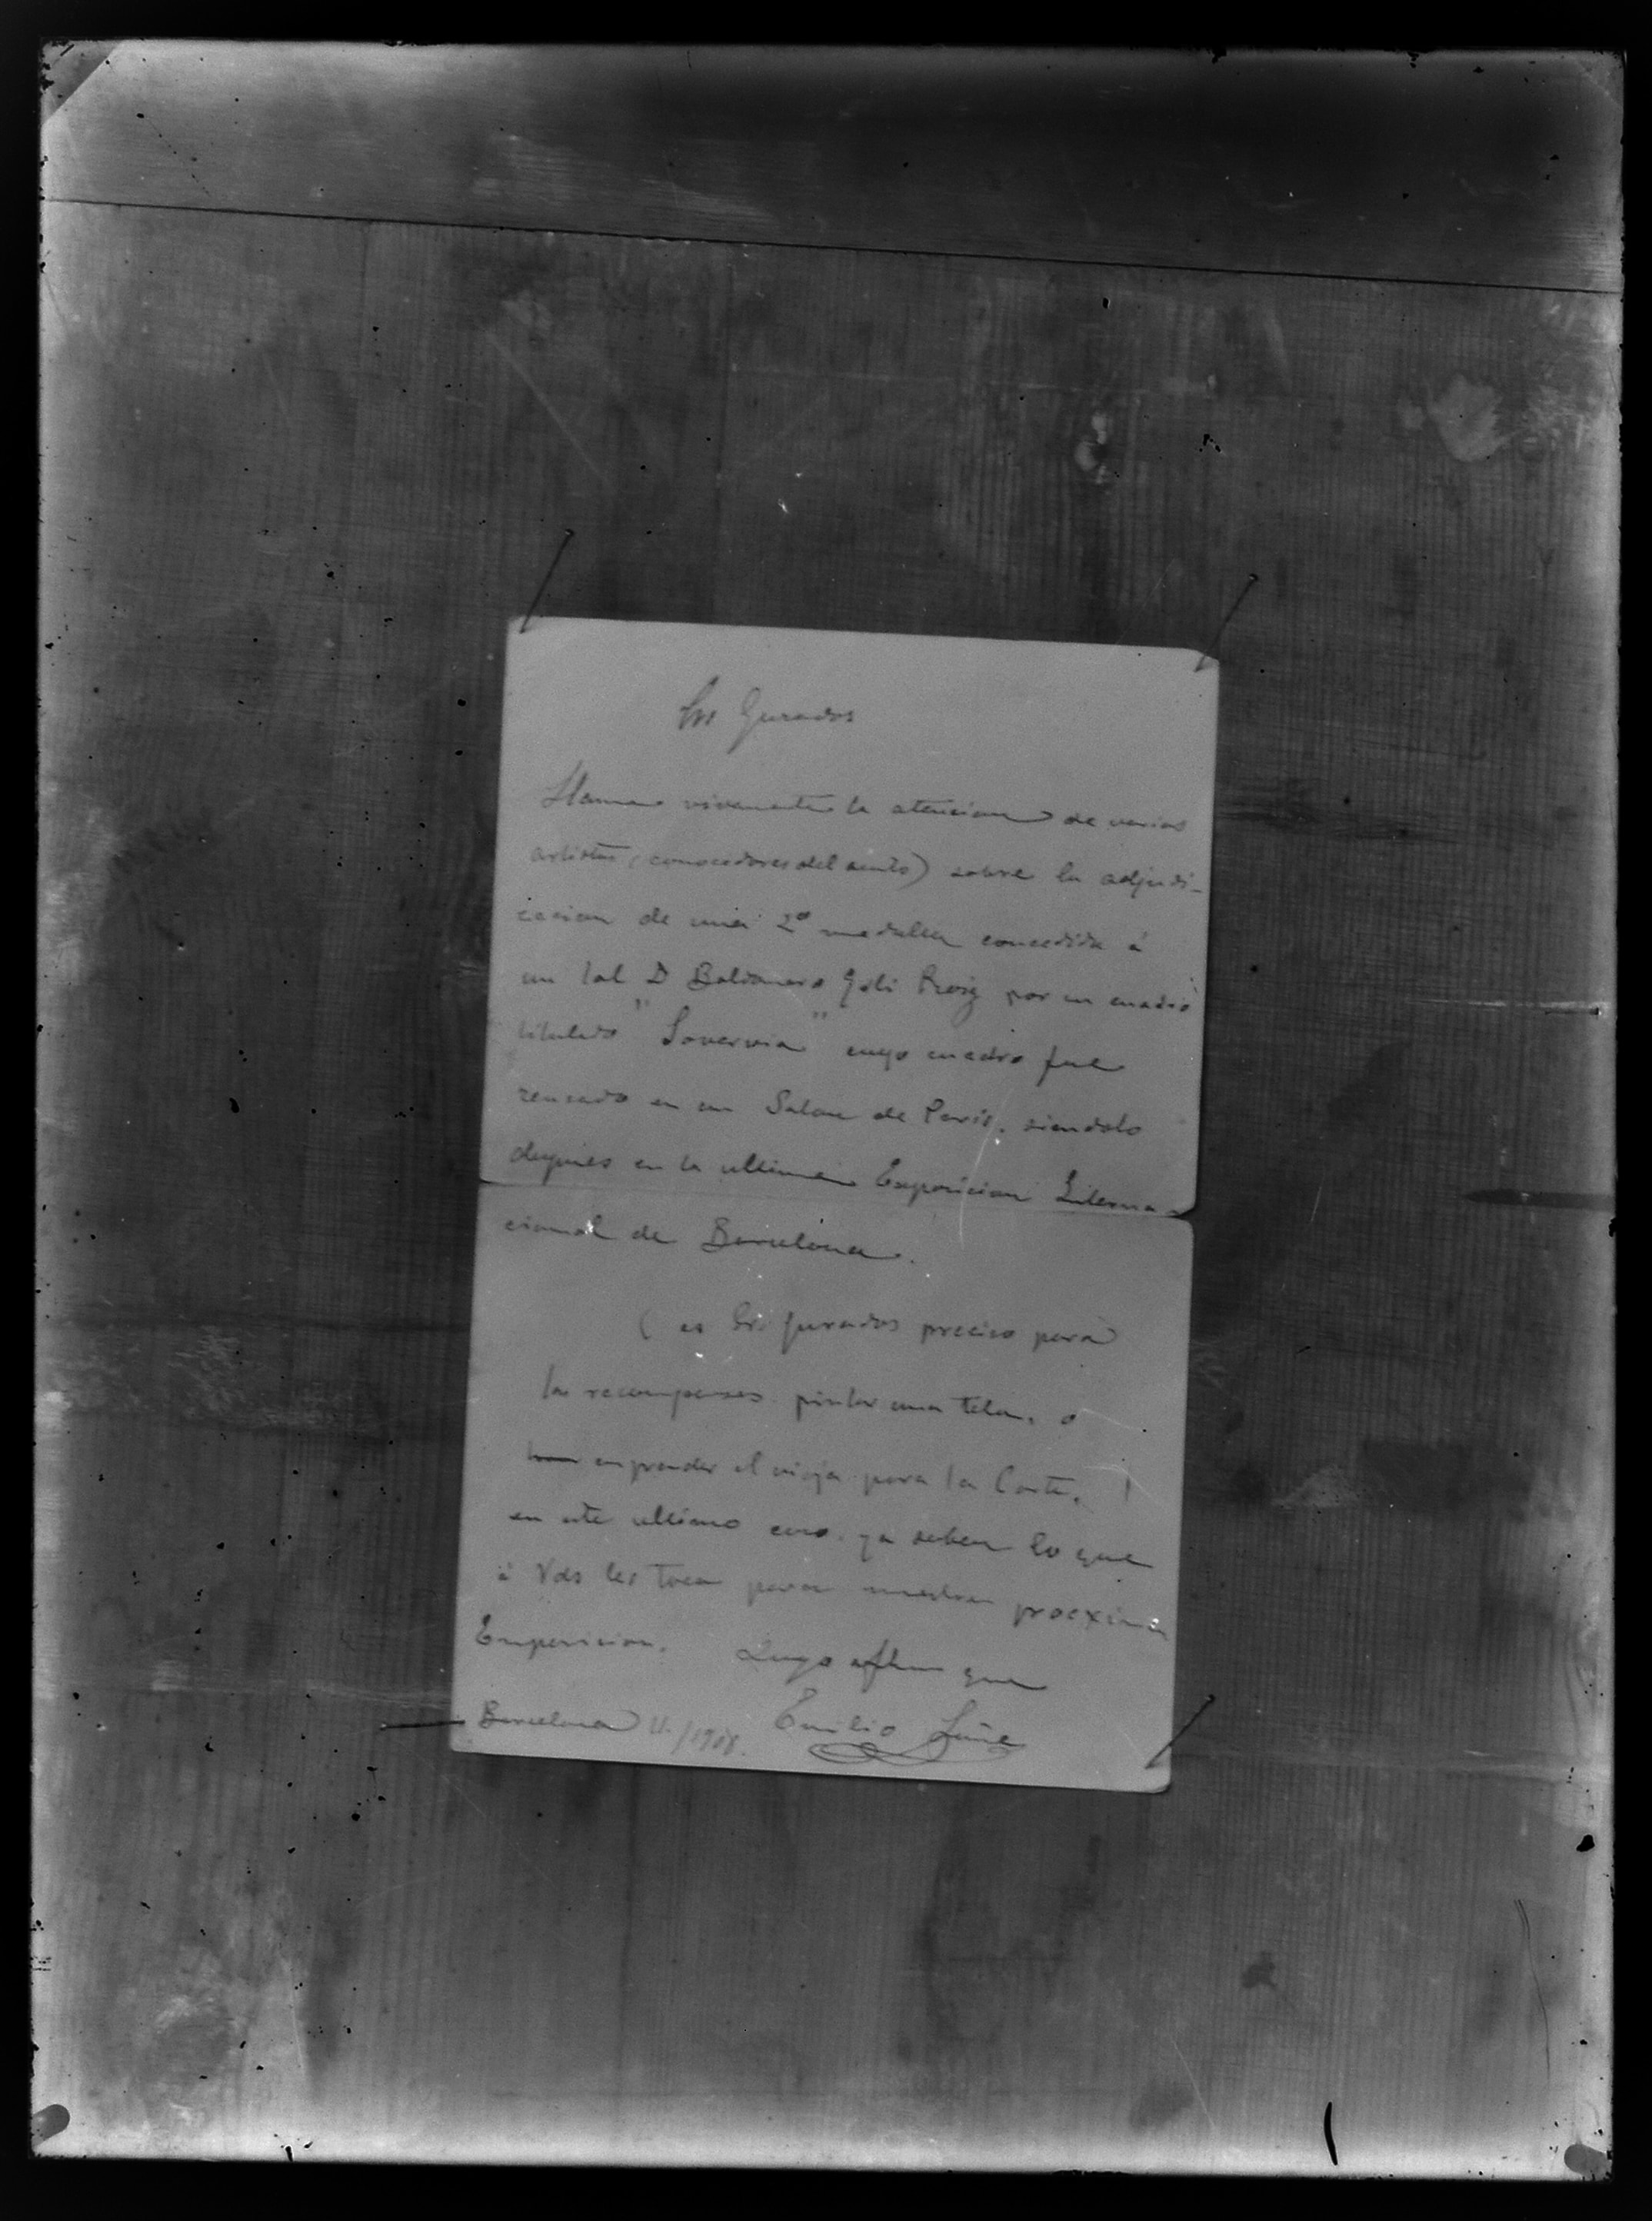 Srs Gurados
Llama vivamente la atencion de varios
artistas (conocedores del acuto) sobre la adjudi-
cacion de una 2ª medalla concedida á
un tal D Baldomero Gili Roig por un cuadro
titulado "Soververia" cuyo cuadro fue
reusado en un Salon de Paris, siendolo
depues en la ultima Exposicion Interna-
cional de Barcelona.
( es Srs. Jurados preciso para
las recompensas pintar una tela, o
emprender el viaje para la Corte, !
en este ultimo caso ya saben lo que
á Vds les toca para nuestra proxima
Exposicion. Suyo affmo que
Barcelona 11/1908. Emilio